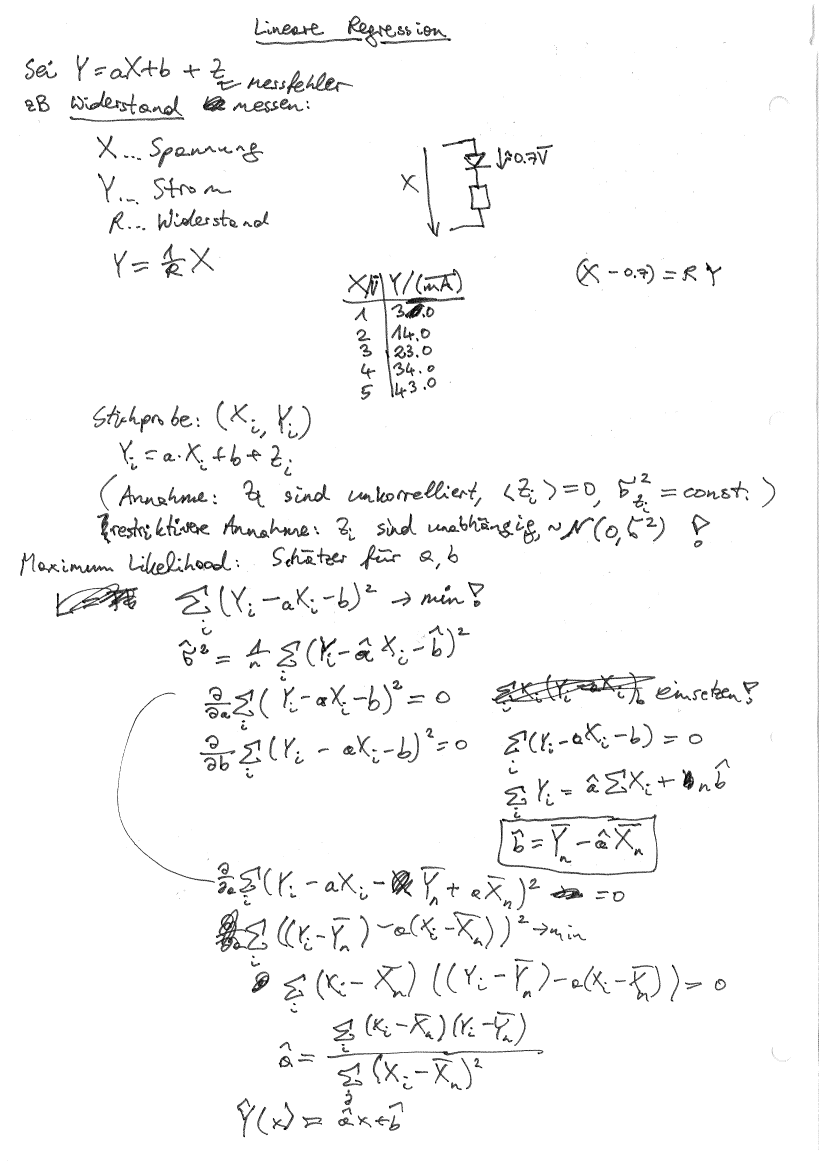 Lineare Regression
Sei Y = aX + b + Z ← Messfehler
zB Widerstand messen:
X... Spannung
Y... Strom
R... Widerstand
Y = 1/R X
X
↓≈0.7V
(X - 0.7) = R Y
X/V | Y/(mA)
1 | 3.0
2 | 14.0
3 | 23.0
4 | 34.0
5 | 43.0
Stichprobe: (X_i, Y_i)
Y_i = a·X_i + b + Z_i
(Annahme: Z_i sind unkorreliert, <Z_i> = 0, σ²_{Z_i} = const.)
restriktivere Annahme: Z_i sind unabhängig, ~ N(0, σ²) !
Maximum Likelihood: Schätzer für a, b
∑_i (Y_i - aX_i - b)² → min!
σ̂² = 1/n ∑_i (Y_i - âX_i - b̂)²
∂/∂a ∑_i (Y_i - aX_i - b)² = 0
einsetzen!
∂/∂b ∑_i (Y_i - aX_i - b)² = 0
∑_i (Y_i - aX_i - b) = 0
∑_i Y_i = â ∑ X_i + n b̂
b̂ = Ȳ_n - â X̄_n
∂/∂a ∑_i (Y_i - aX_i - Ȳ_n + a X̄_n)² = 0
∑_i ((Y_i - Ȳ_n) - a(X_i - X̄_n))² → min
∑_i (X_i - X̄_n) ((Y_i - Ȳ_n) - a(X_i - X̄_n)) = 0
â = ∑_i (X_i - X̄_n)(Y_i - Ȳ_n) / ∑_i (X_i - X̄_n)²
Ŷ(x) = âx + b̂